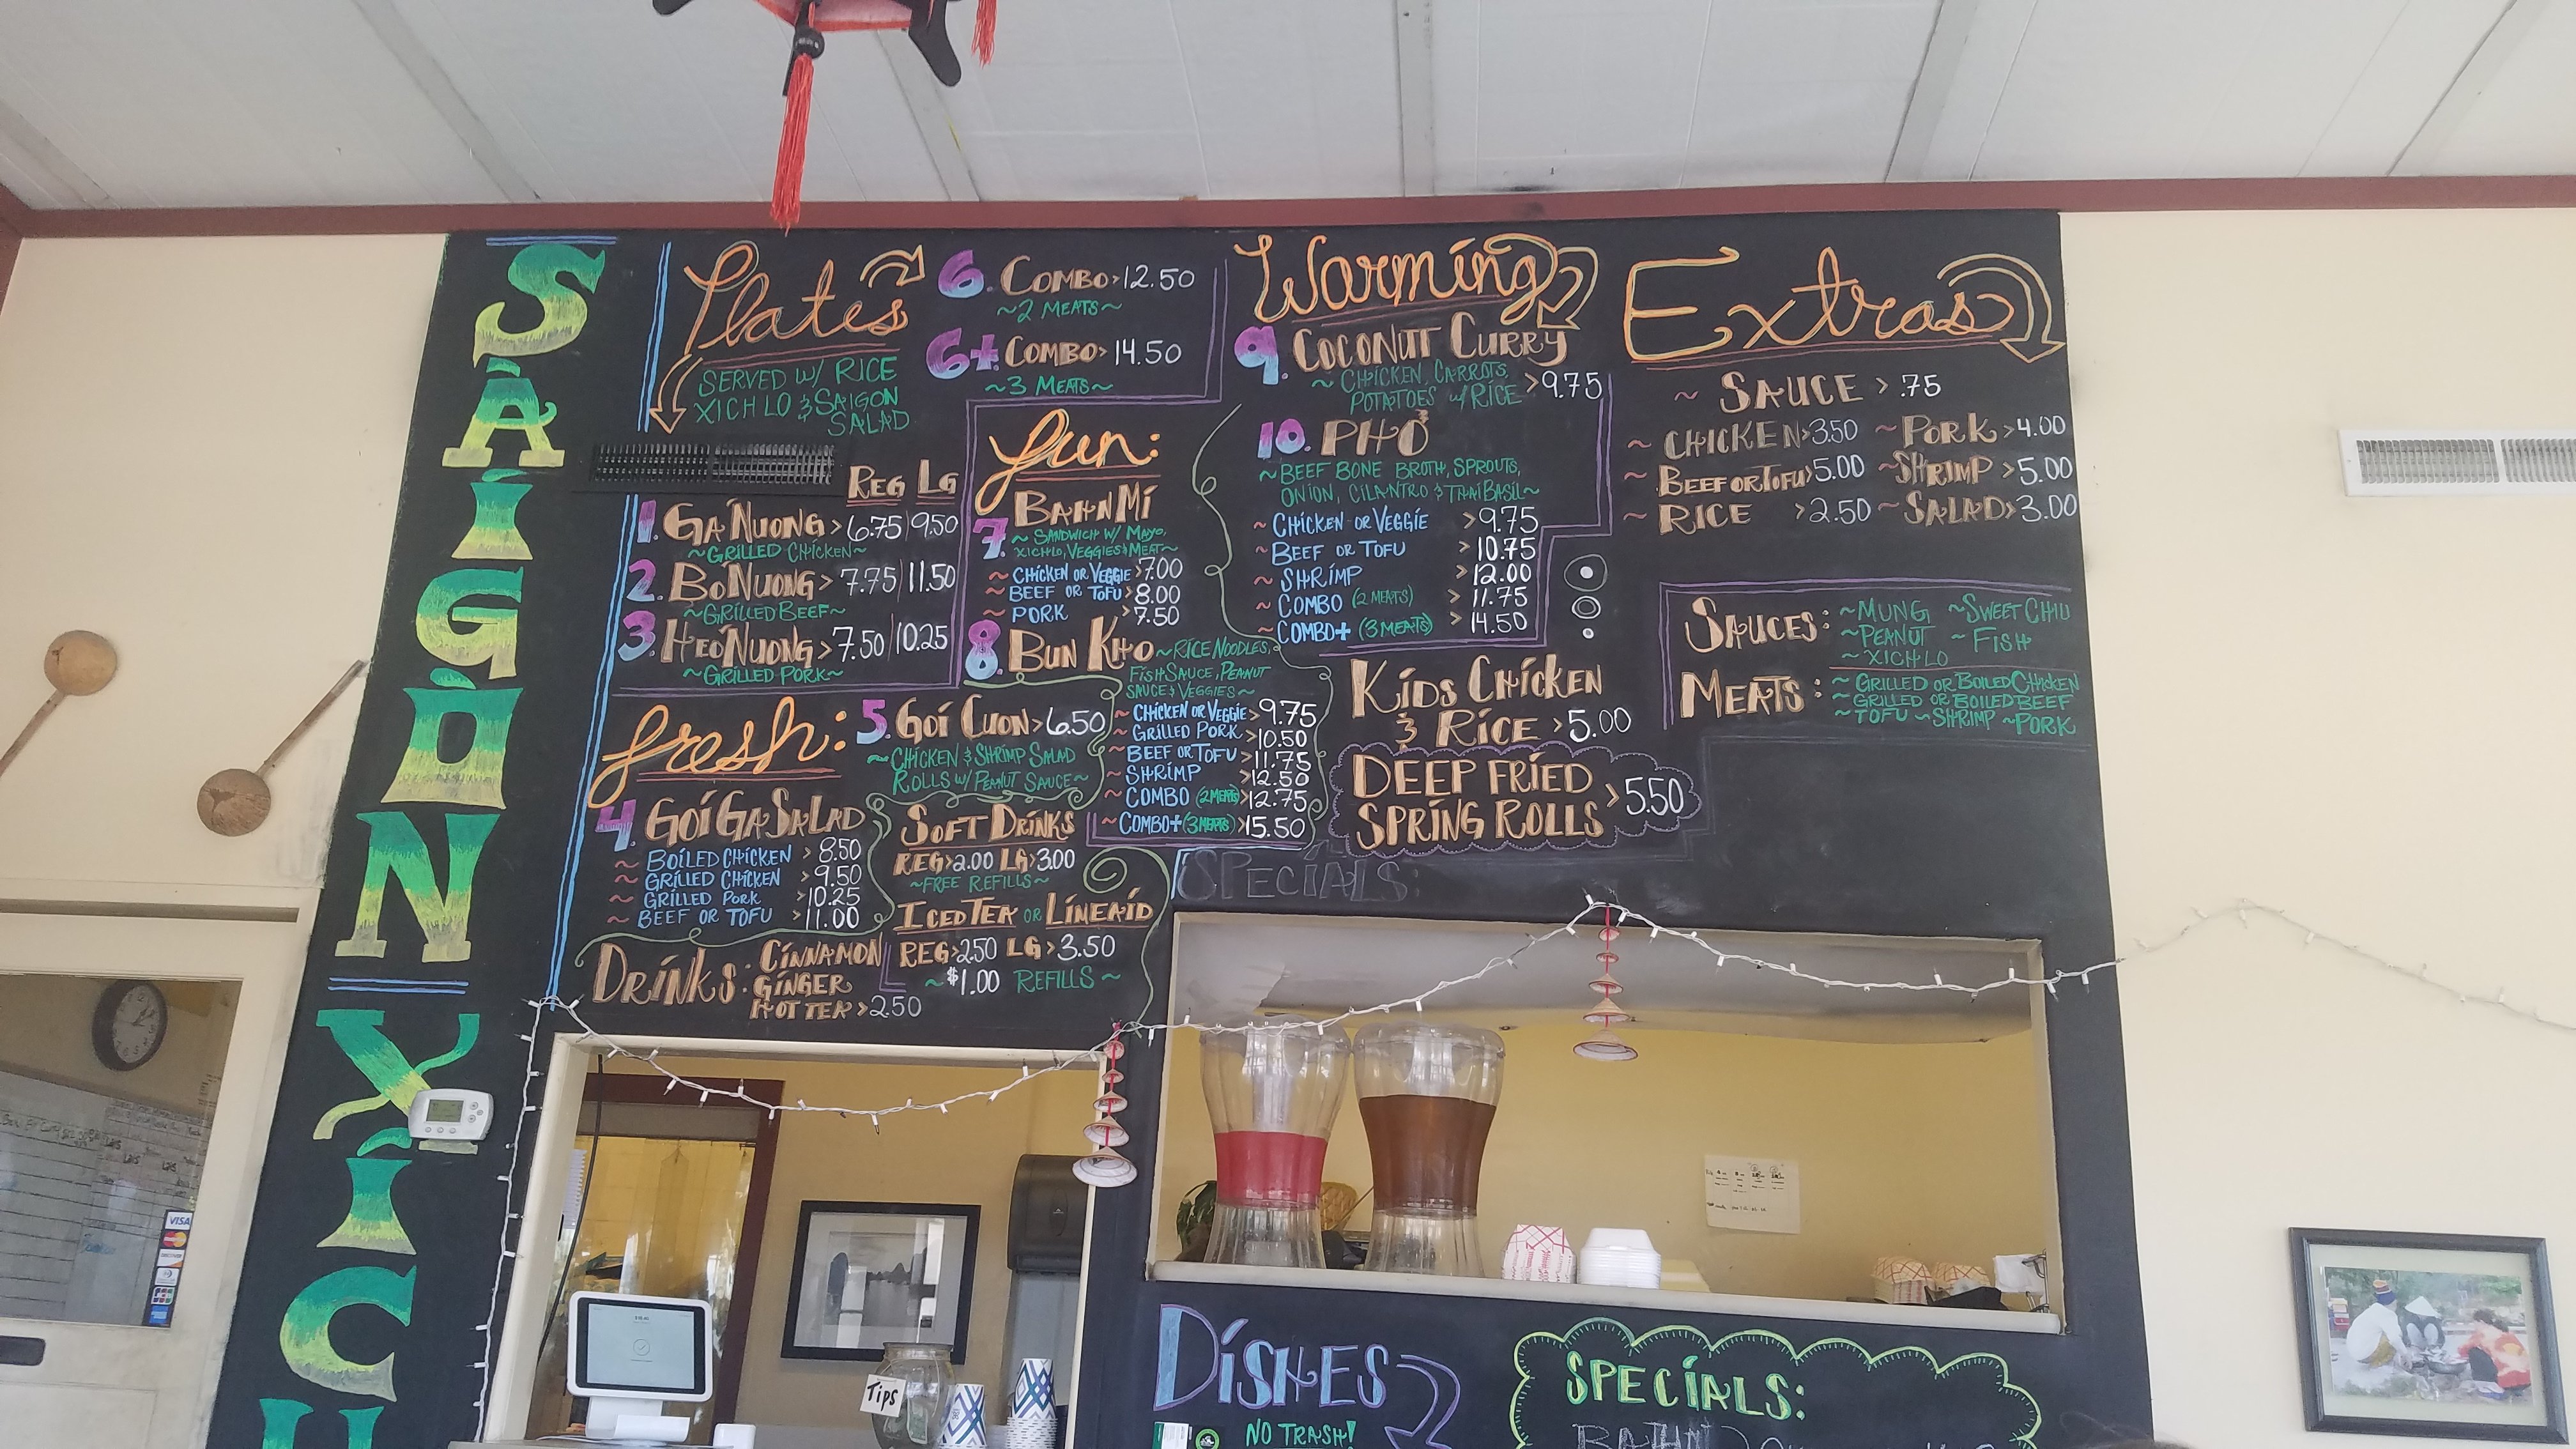 SAIGON XICH
Plates
SERVED W/ RICE
XICH LO & SAIGON
SALAD
REG LG
1. GA NUONG > 6.75 | 9.50
~GRILLED CHICKEN~
2. BO NUONG > 7.75 | 11.50
~GRILLED BEEF~
3. HEO NUONG > 7.50 | 10.25
~GRILLED PORK~
6. COMBO > 12.50
~2 MEATS~
6+ COMBO > 14.50
~3 MEATS~
fresh:
4 GOI GA SALAD
~ BOILED CHICKEN > 8.50
~ GRILLED CHICKEN > 9.50
~ GRILLED PORK > 10.25
~ BEEF OR TOFU > 11.00
5. GOI CUON > 6.50
~ CHICKEN & SHRIMP SALAD
ROLLS W/ PEANUT SAUCE~
SOFT DRINKS
REG > 2.00 LG > 3.00
~FREE REFILLS~
ICED TEA OR LIMEAID
REG > 2.50 LG > 3.50
~ $1.00 REFILLS ~
DRINKS: CINNAMON
GINGER
HOT TEA > 2.50
fun:
BAHN MI
7 ~ SANDWICH W/ MAYO,
XICHLO, VEGGIES & MEAT~
~ CHICKEN OR VEGGIE > 7.00
~ BEEF OR TOFU > 8.00
~ PORK > 7.50
8. BUN KHO ~RICE NOODLES,
FISH SAUCE, PEANUT
SAUCE & VEGGIES~
~ CHICKEN OR VEGGIE > 9.75
~ GRILLED PORK > 10.50
~ BEEF OR TOFU > 11.75
~ SHRIMP > 12.50
~ COMBO (2 MEATS) > 12.75
~ COMBO+ (3 MEATS) > 15.50
Warming
9. COCONUT CURRY
~ CHICKEN, CARROTS,
POTATOES W/ RICE > 9.75
10. PHỞ
~ BEEF BONE BROTH, SPROUTS,
ONION, CILANTRO & THAI BASIL~
~ CHICKEN OR VEGGIE > 9.75
~ BEEF OR TOFU > 10.75
~ SHRIMP > 12.00
~ COMBO (2 MEATS) > 11.75
~ COMBO+ (3 MEATS) > 14.50
KIDS CHICKEN
& RICE > 5.00
DEEP FRIED
SPRING ROLLS > 5.50
SPECIALS:
Extras
~ SAUCE > .75
~ CHICKEN > 3.50 ~ PORK > 4.00
~ BEEF OR TOFU > 5.00 ~ SHRIMP > 5.00
~ RICE > 2.50 ~ SALAD > 3.00
SAUCES: ~MUNG ~SWEET CHILI
~PEANUT ~ FISH
~ XICH LO
MEATS: ~ GRILLED OR BOILED CHICKEN
~ GRILLED OR BOILED BEEF
~ TOFU ~SHRIMP ~PORK
VISA
TIPS
DISHES
NO TRASH!
SPECIALS: